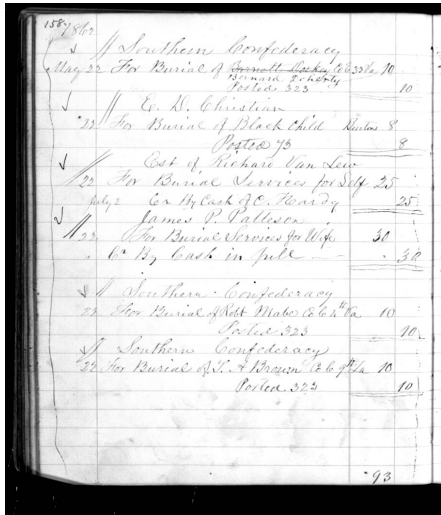 158
1862
// Southern Confederacy
May 22 For Burial of Co E 33 Va 10
Bernard Doherty
Posted 323 10
// E. D. Christian
" 22 For Burial of Black Child 8
Posted 73 8
// Est of Richard Van Lew
22 For Burial Services for Self 25
July 2 Cr By Cash of C. Hardy 25
// James P. Patteson
22 For Burial Services for Wife 30
" Cr By Cash in full — " 30
// Southern Confederacy
22 For Burial of Robt Mabe Co C 4th Va 10
Posted 323 10
// Southern Confederacy
" 22 For Burial of T. A Brown Co C 9th La 10
Posted 323 10
93